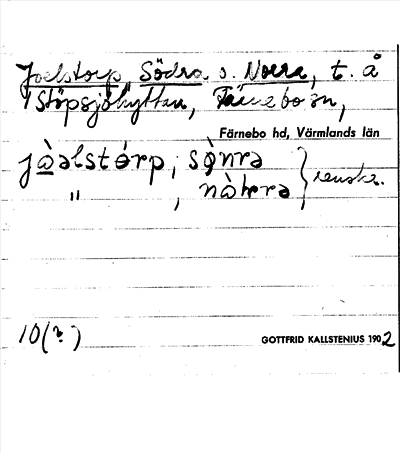 Joelstorp, Södra o. Norra, t. å
Stöpsjöhyttan, Färnebo sn,
Färnebo hd, Värmlands län
jòəlstórp, sǫ̀nrə
" , nòrrə
10(?)
GOTTFRID KALLSTENIUS 1902